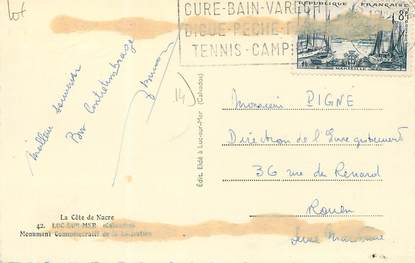 Lot
CURE-BAIN-VARECH
DIGUE-PECHE-T
TENNIS-CAMP
REPUBLIQUE FRANÇAISE
8F
MARSEILLE
14)
Meilleur souvenir
Bon
Monsieur PIGNÉ
Direction de l'Enregistrement
36 rue de Renard
Rouen
Seine Maritime
Edit. Eldé à Luc-sur-Mer (Calvados)
La Côte de Nacre
42. LUC-SUR-MER (Calvados)
Monument Commémoratif de la Libération